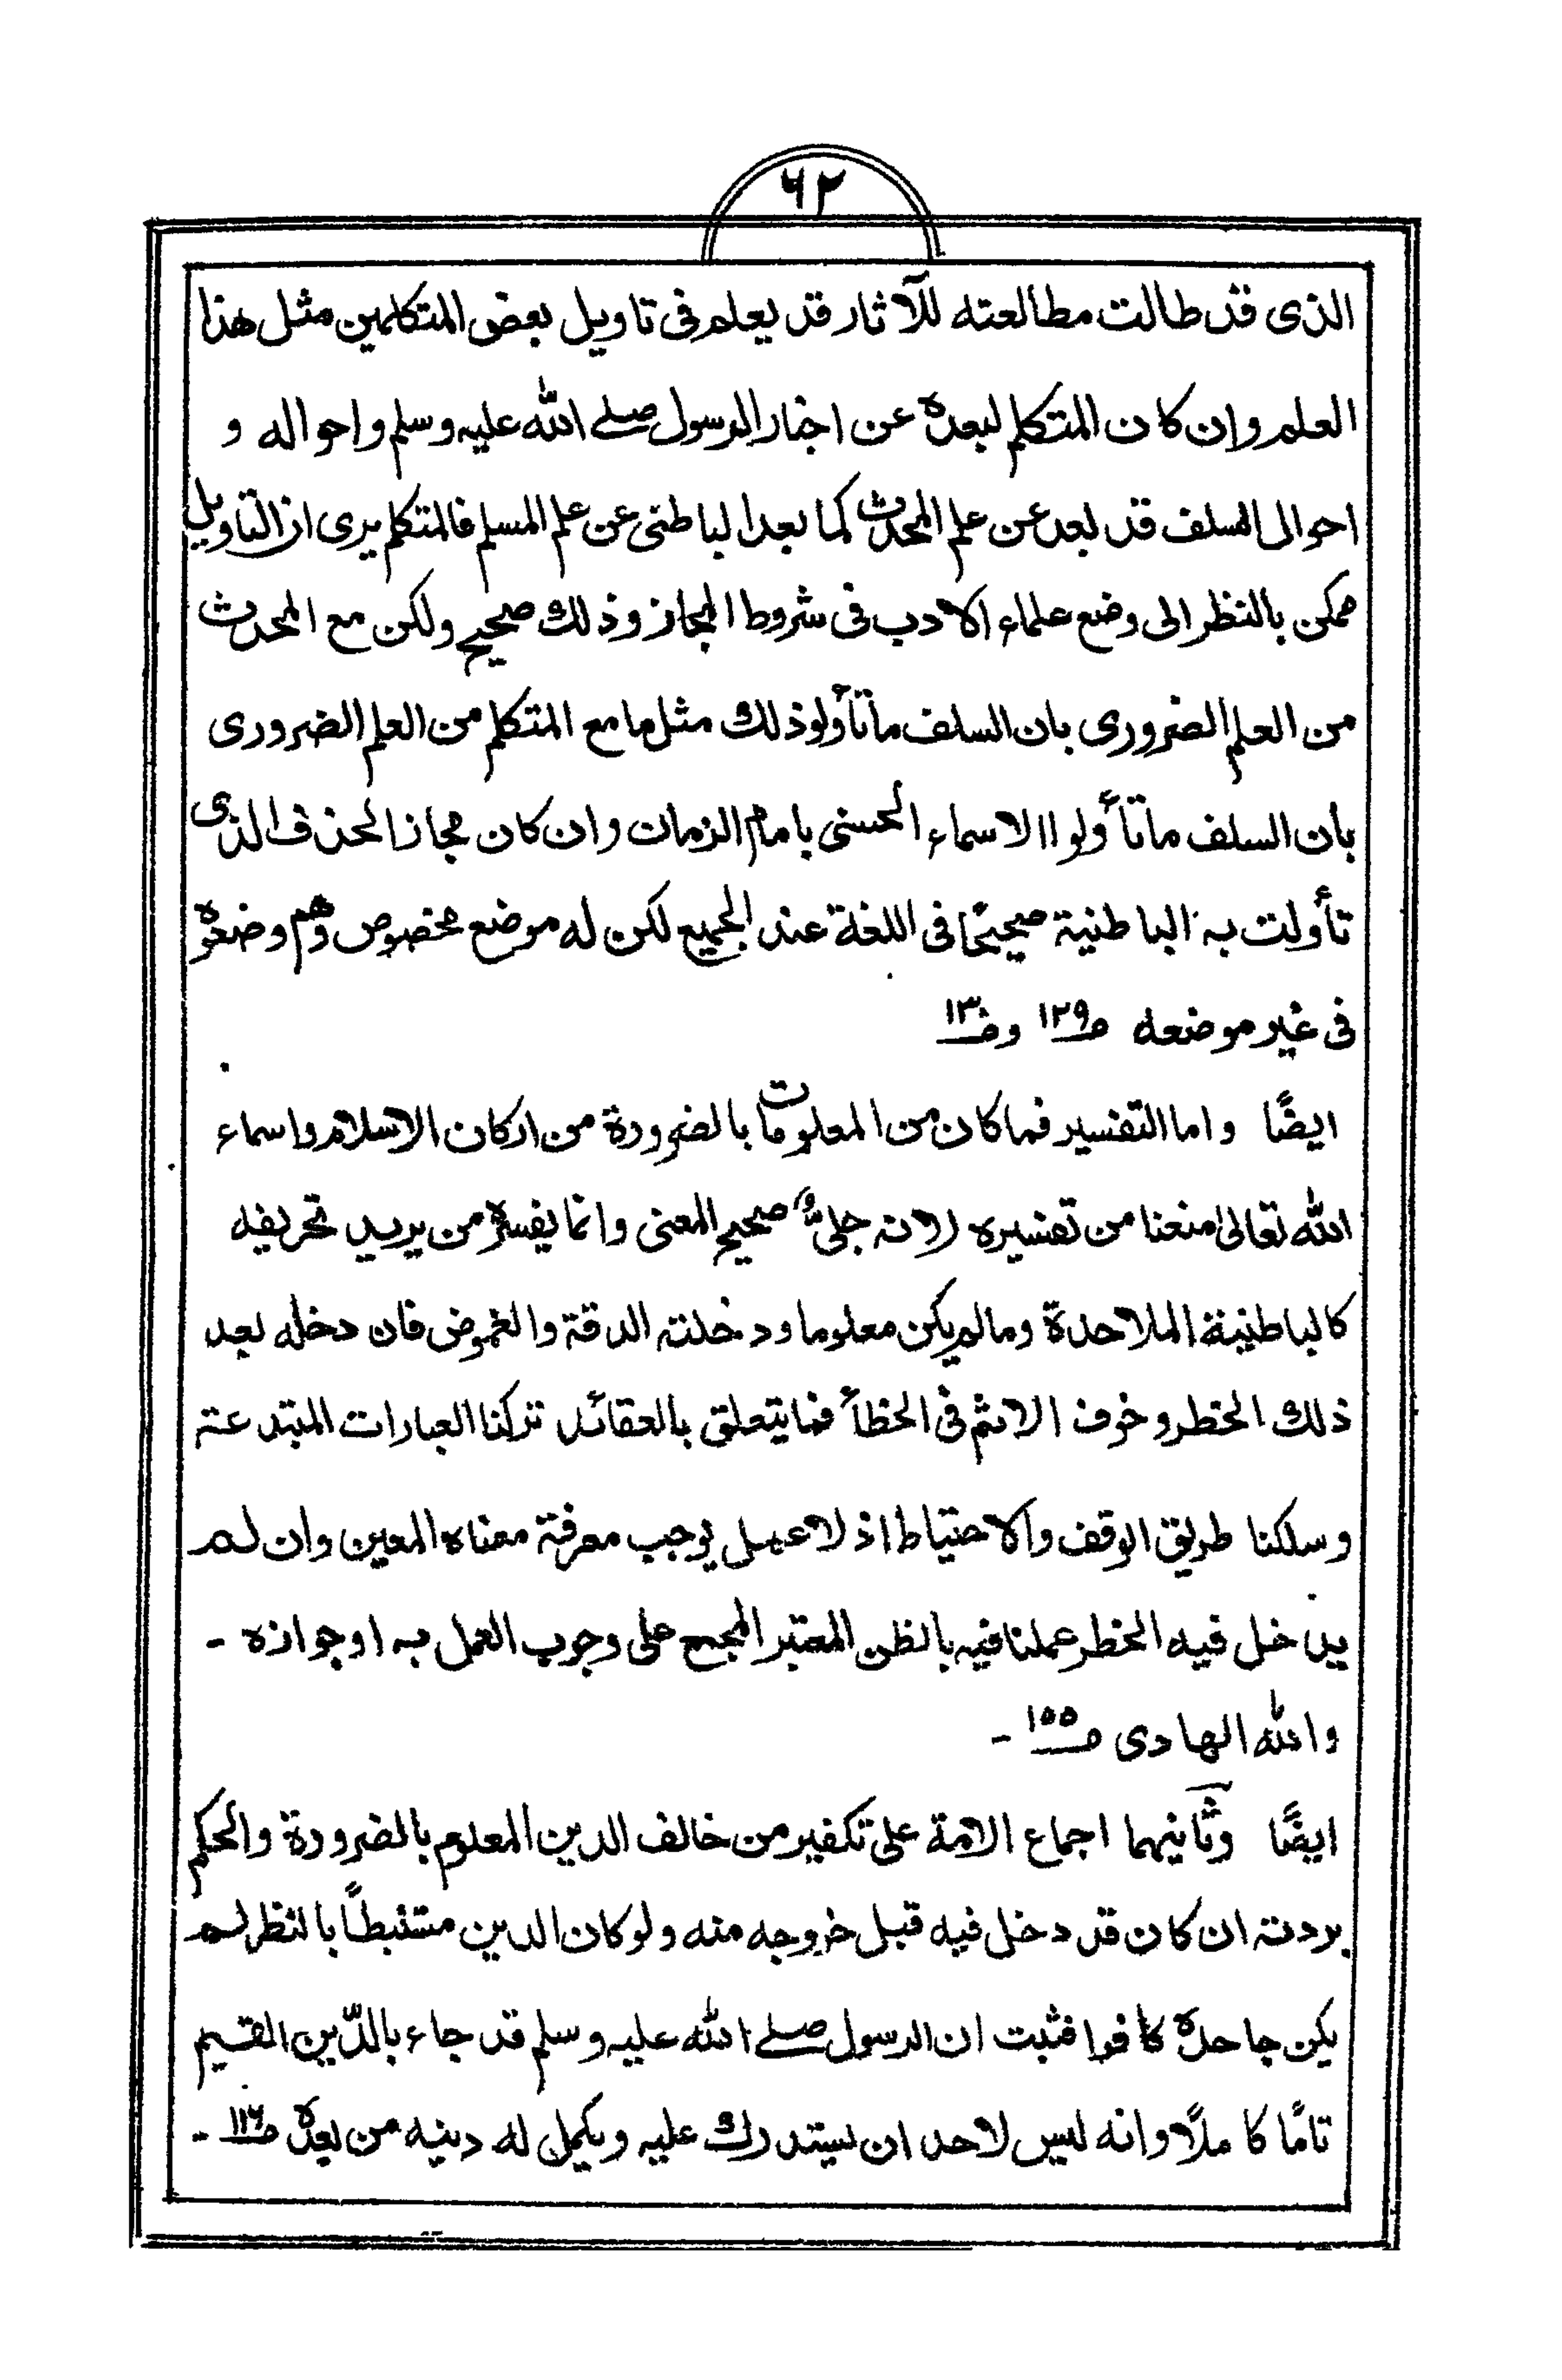 ٦٢
الذی قد طالت مطالعته للآثار قد یعلم فی تاویل بعض المتکلمین مثل هذا
العلم وان کان المتکلم لبعده عن اخبار الرسول صلے الله علیه وسلم واحواله و
احوال السلف قد بعد عن علم المحدث کما بعد الباطنی عن علم المسلم فالمتکلم یری ان التاویل
ممکن بالنظر الی وضع علماء الادب فی شروط المجاز وذلك صحیح ولکن مع المحدث
من العلم الضروری بان السلف ماتأولوا ذلك مثل ما مع المتکلم من العلم الضروری
بان السلف ماتأولوا الاسماء الحسنی بامام الزمان وان کان مجاز الحذف الذی
تأولت به الباطنیة صحیحًا فی اللغة عند الجمیع لکن له موضع مخصوص وهم وضعوه
فی غیر موضعه صـ١٢٩ وصـ١٣٠
ایضًا واما التفسیر فما کان من المعلومات بالضرورة من ارکان الاسلام واسماء
الله تعالیٰ منعنا من تفسیره لانه جلیٌّ صحیح المعنی وانما یفسره من یرید تحریفه
کالباطنیة الملاحدة ومالم یکن معلوما ودخلته الدقة والغموض فان دخله بعد
ذلك الخطر وخوف الاثم فی الخطأ فما یتعلق بالعقائد ترکنا العبارات المبتدعة
وسلکنا طریق الوقف والاحتیاط اذ لا عمل یوجب معرفة معناه المعین وان لم
یدخل فیه الخطر عملنا فیه بالظن المعتبر المجمع علی وجوب العمل به او جوازه -
والله الهادی صـ١٥٥ -
ایضًا وثانیهما اجماع الامة علی تکفیر من خالف الدین المعلوم بالضرورة والحکم
بردته ان کان قد دخل فیه قبل خروجه منه ولو کان الدین مستنبطاً بالنظر لم
یکن جاحده کافرا فثبت ان الرسول صلے الله علیه وسلم قد جاء بالدّین القیم
تامًا کاملًا وانه لیس لاحد ان یستدرك علیه ویکمل له دینه من بعده صـ١١٦ -